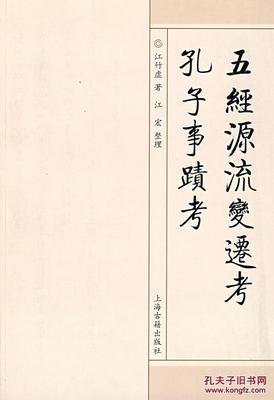 五經源流變遷考
孔子事蹟考
◎江竹虛 著 江宏 整理
上海古籍出版社
孔夫子旧书网